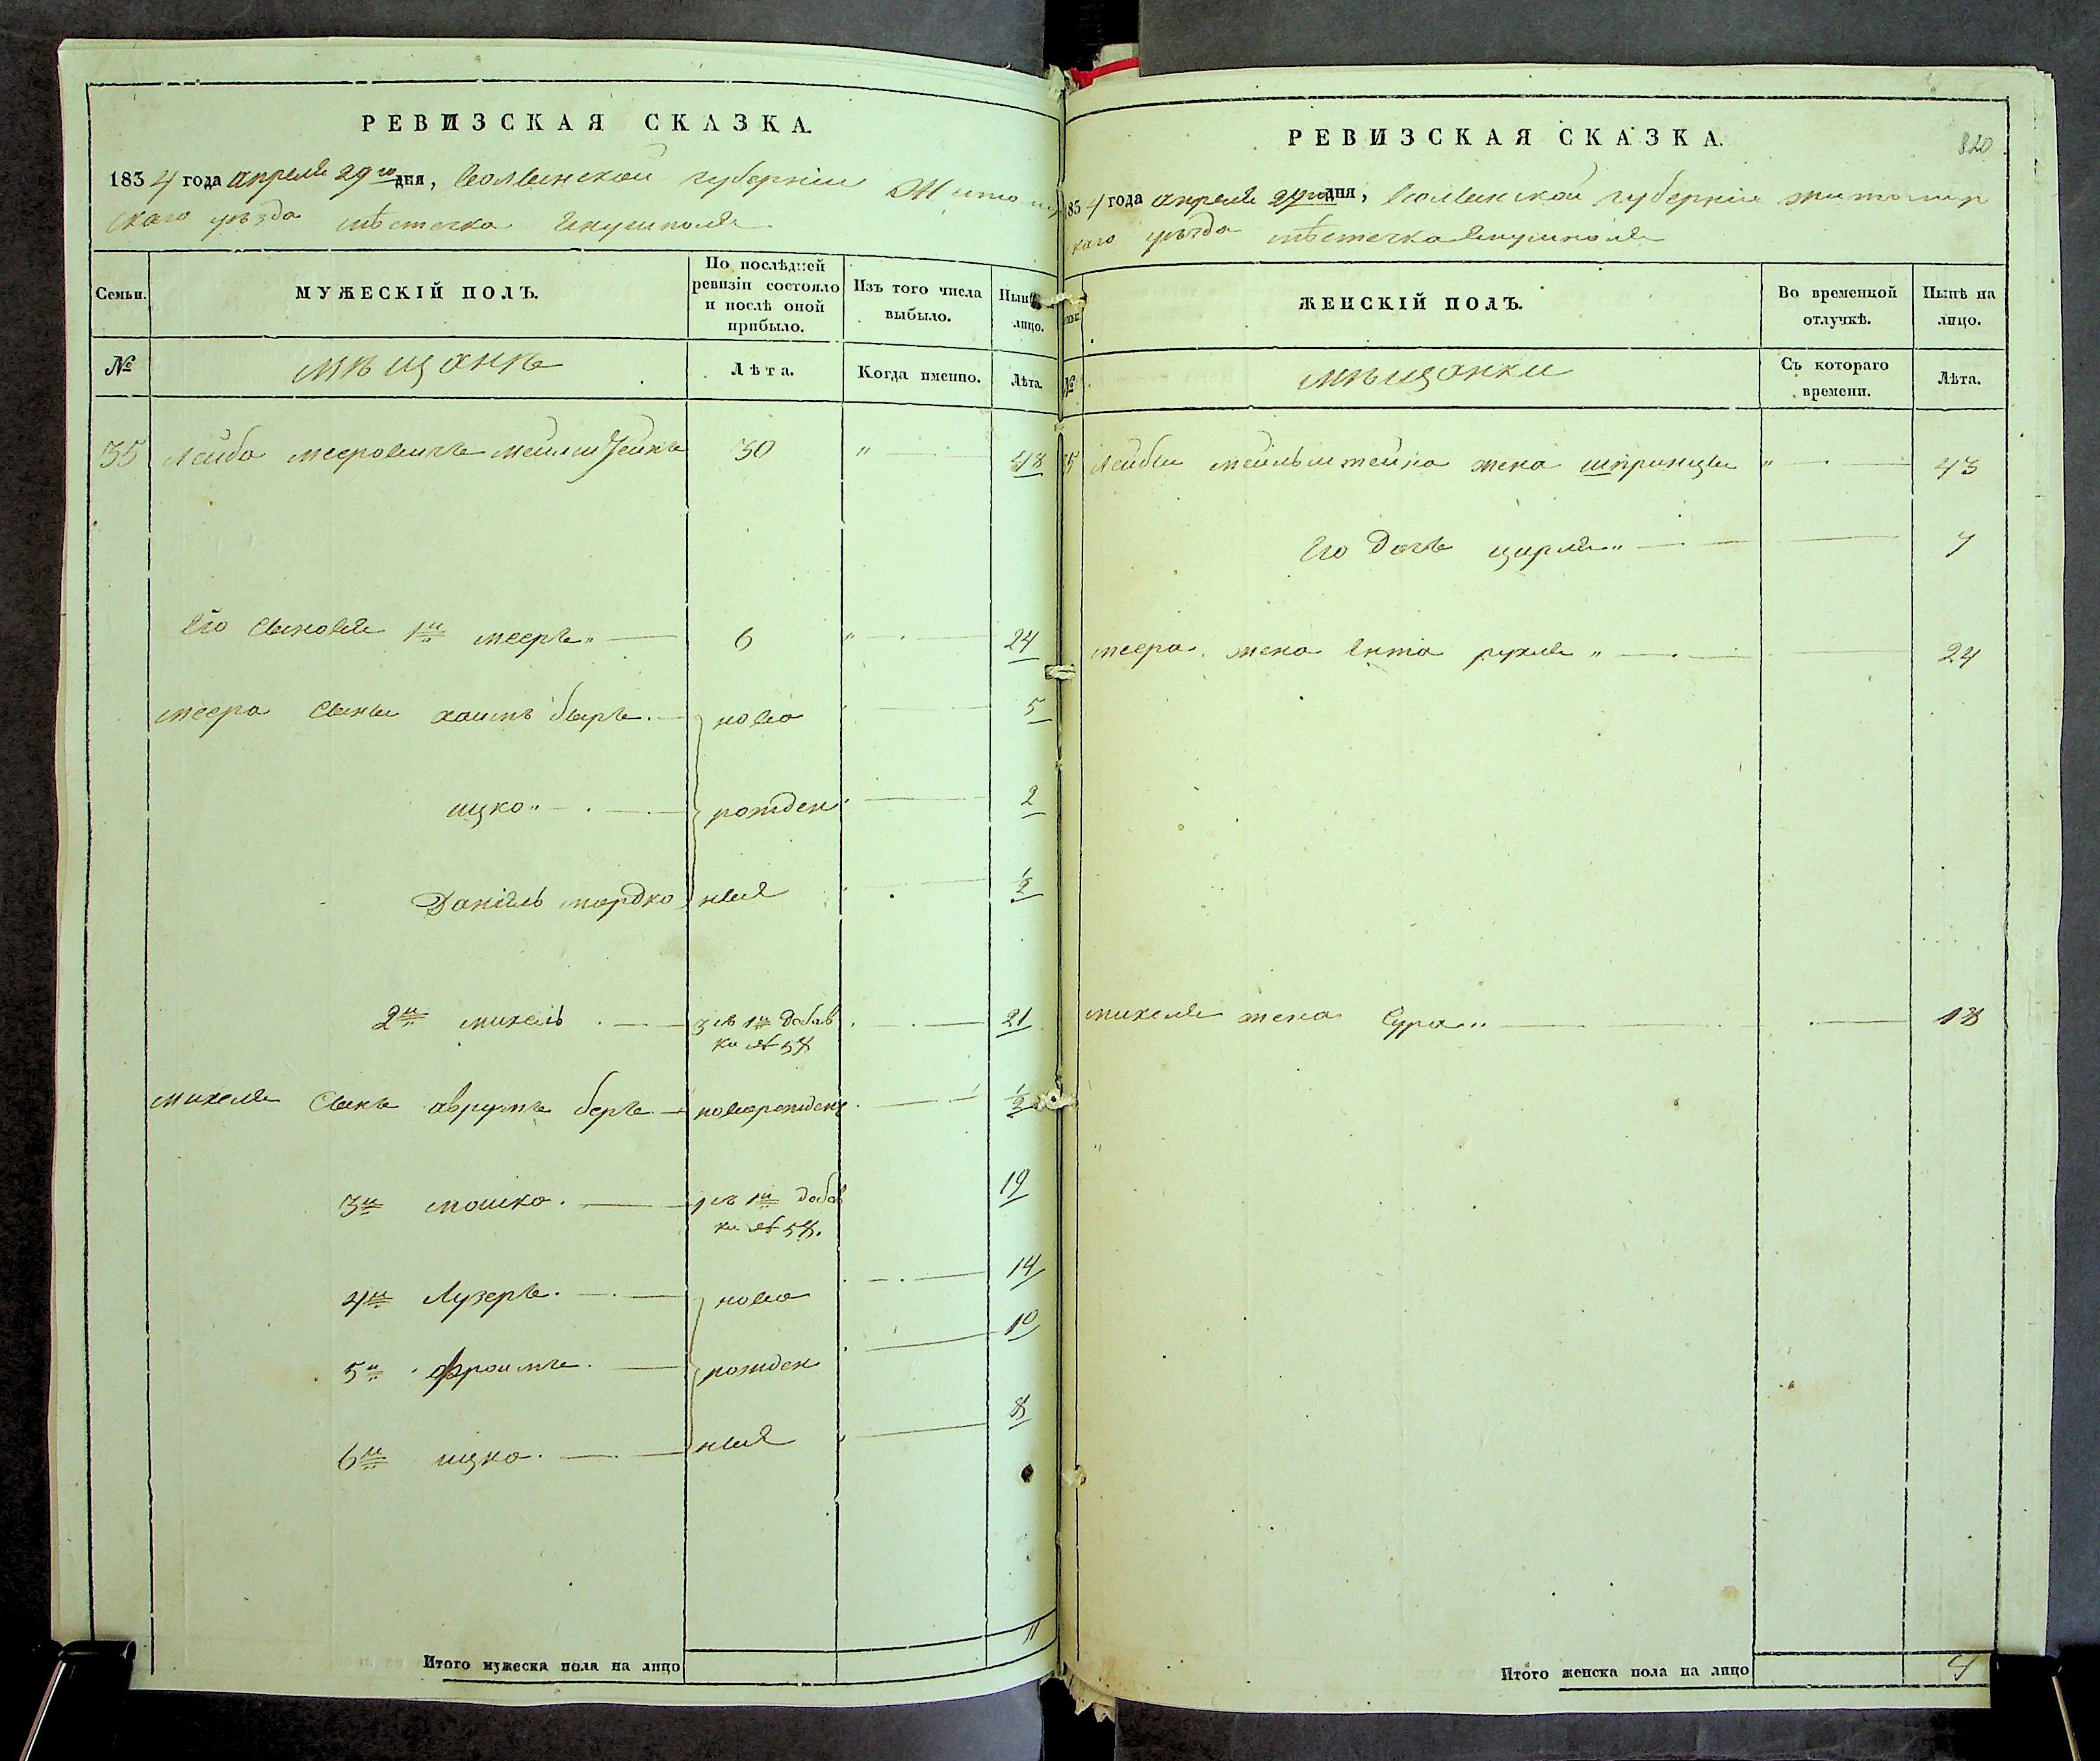 РЕВИЗСКАЯ СКАЗКА.
1834 года апреля 29го дня, Волынской губернии Житомир
скаго уезда мѣстечка Янушполя
Семьи. МУЖЕСКІЙ ПОЛЪ. По послѣдней ревизіи состояло и послѣ оной прибыло. Изъ того числа выбыло. Нынѣ лицо.
№ мѣщанѣ Лѣта. Когда именно. Лѣта.
35 Лейба мееровичъ мейлиштейнъ 30 " 48
Его Сыновья 1й мееръ " 6 " 24
меера Сыны хаимъ беръ. ново 5
ицко " рожден 2
Даніель мордко ныя ½
2й михель 3 въ 1й добав 21
ки № 58
михеля Сынъ аврумъ беръ новорожден ½
3й мошко. 1 въ 1й добав 19
ки № 58.
4й Лузеръ. ново 14
5й фроимъ. рожден 10
6й ицко. ныя 8
Итого мужеска пола на лицо 11
РЕВИЗСКАЯ СКАЗКА. 820
1834 года апреля 29го дня, Волынской губерніи житомир
скаго уѣзда мѣстечка Янушполя
ЖЕНСКІЙ ПОЛЪ. Во временной отлучкѣ. Нынѣ на лицо.
№ мѣщанки Съ котораго времени. Лѣта.
35 Лейбы мейльштейна жена шпринцы " 43
Его дочь цирля " 7
меера жена Ента рухля " 24
михеля жена Сура " 18
Итого женска пола на лицо 4